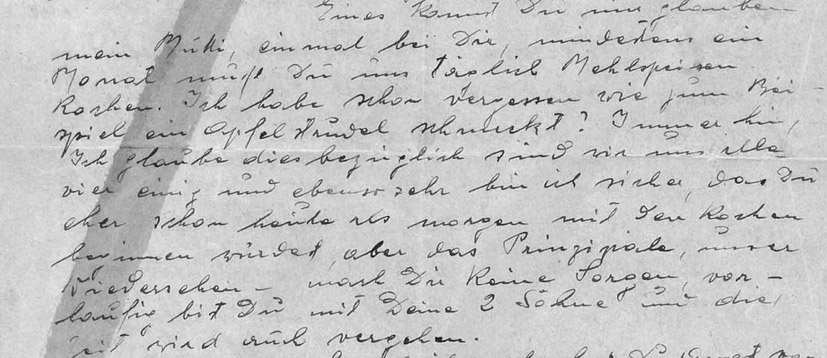 Eines kannst Du mir glauben
mein Muki, einmal bei Dir, mindestens ein
Monat mußt Du uns täglich Mehlspeisen
kochen. Ich habe schon vergessen wie zum Bei-
spiel ein Apfelstrudel schmeckt? Immer hin,
Ich glaube diesbezüglich sind wir uns alle
vier einig und ebenso sehr bin ich sicher, das Du
eher schon heute als morgen mit den Kochen
beginnen würdest, aber das Prinzipiale, unser
Wiedersehen - mach Dir keine Sorgen, vor-
läufig bist Du mit Deine 2 Söhne und die
Zeit wird auch vergehen.